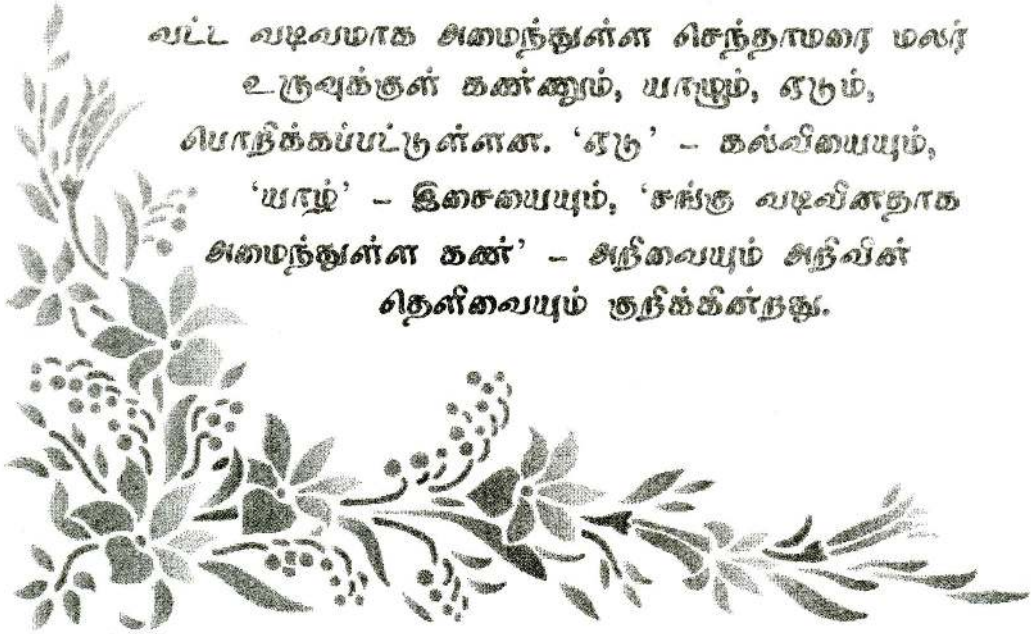 வட்ட வடிவமாக அமைந்துள்ள செந்தாமரை மலர்
உருவுக்குள் கண்ணும், யாழும், ஏடும்,
பொறிக்கப்பட்டுள்ளன. ‘ஏடு’ – கல்வியையும்,
‘யாழ்’ – இசையையும், ‘சங்கு வடிவினதாக
அமைந்துள்ள கண்’ – அறிவையும் அறிவின்
தெளிவையும் குறிக்கின்றது.